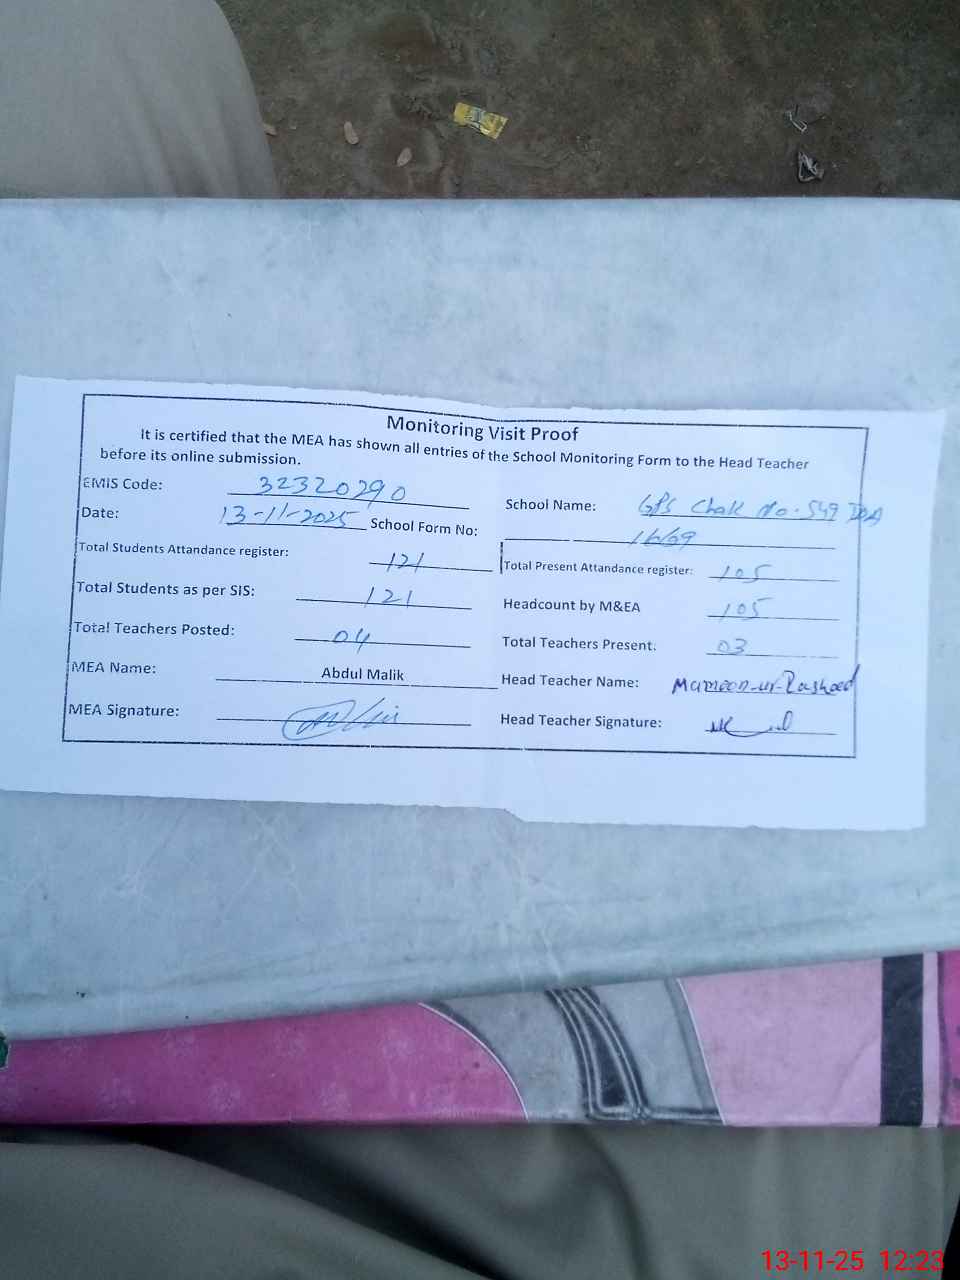 Monitoring Visit Proof
It is certified that the MEA has shown all entries of the School Monitoring Form to the Head Teacher
before its online submission.
EMIS Code: 32320290 School Name: GPS Chak No. 549 TDA
Date: 13-11-2025 School Form No: 16/69
Total Students Attandance register: 121 Total Present Attandance register: 105
Total Students as per SIS: 121 Headcount by M&EA 105
Total Teachers Posted: 04 Total Teachers Present: 03
MEA Name: Abdul Malik Head Teacher Name: Mamoon-ur-Rasheed
MEA Signature: Head Teacher Signature:
13-11-25 12:23